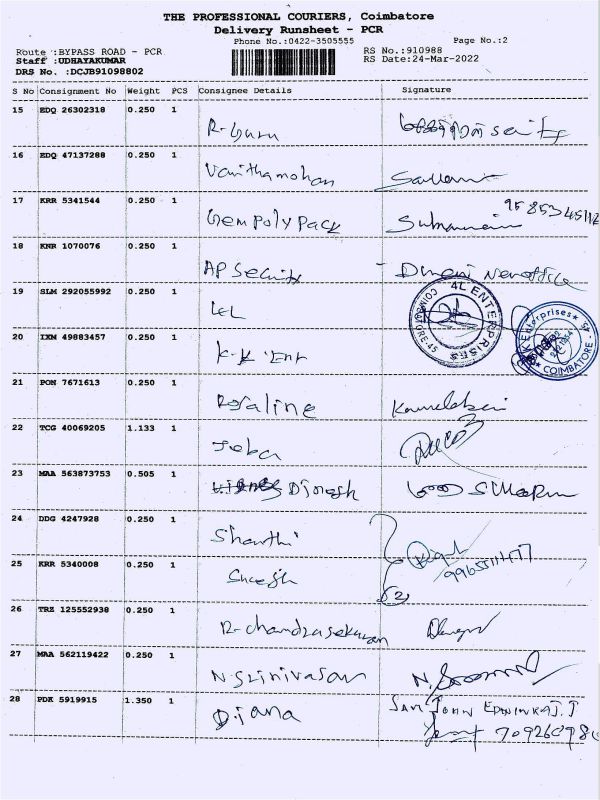 THE PROFESSIONAL COURIERS, Coimbatore
Delivery Runsheet - PCR
Phone No.:0422-3505555 Page No.:2
Route :BYPASS ROAD - PCR RS No.:910988
Staff :UDHAYAKUMAR RS Date:24-Mar-2022
DRS No. :DCJB91098802
S No Consignment No Weight PCS Consignee Details Signature
15 EDQ 26302318 0.250 1 R-Guru
16 EDQ 47137288 0.250 1 Vanithamohan
17 KRR 5341544 0.250 1 Gem Poly Pack
18 KNR 1070076 0.250 1 AP Security
19 SLM 292055992 0.250 1 4L ENTERPRISES
20 IXM 49883457 0.250 1 K-K Ent K Enterprises COIMBATORE
21 PON 7671613 0.250 1 Rosaline
22 TCG 40069205 1.133 1 Jeba
23 MAA 563873753 0.505 1 Dinesh
24 DDG 4247928 0.250 1 Shanthi
25 KRR 5340008 0.250 1
26 TRZ 125552938 0.250 1 R-chandrasekaran
27 MAA 562119422 0.250 1 N-Srinivasan
28 PDK 5919915 1.350 1 Diana SAM JOHN